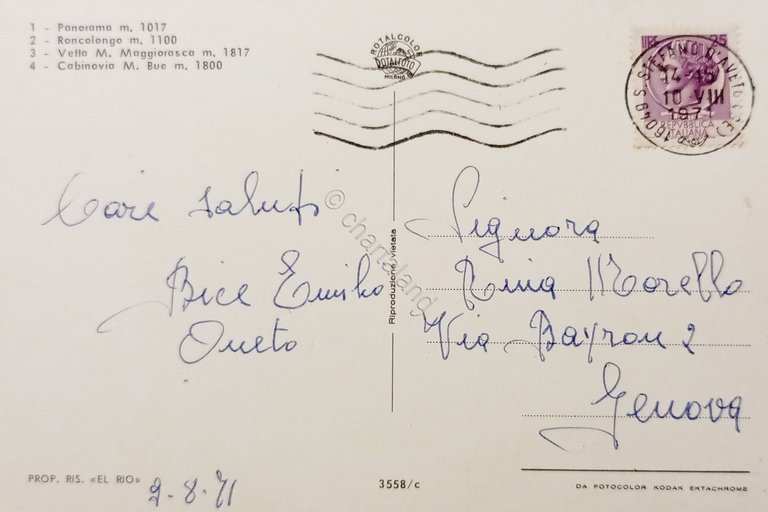 1 - Panorama m. 1017
2 - Roncolongo m. 1100
3 - Vetta M. Maggiorasca m. 1817
4 - Cabinovia M. Bue m. 1800
ROTALCOLOR
ROTALFOTO
MILANO
LIRE 25
REPVBBLICA
ITALIANA
16049 S. STEFANO D'AVETO (GE)
10 VIII
1971
Cari saluti
Bice Emilio
Oneto
© chartaland
Riproduzione vietata
Signora
Rina Morello
Via Bayron 2
Genova
PROP. RIS. «EL RIO»
2-8-71
3558/c
DA FOTOCOLOR KODAK EKTACHROME